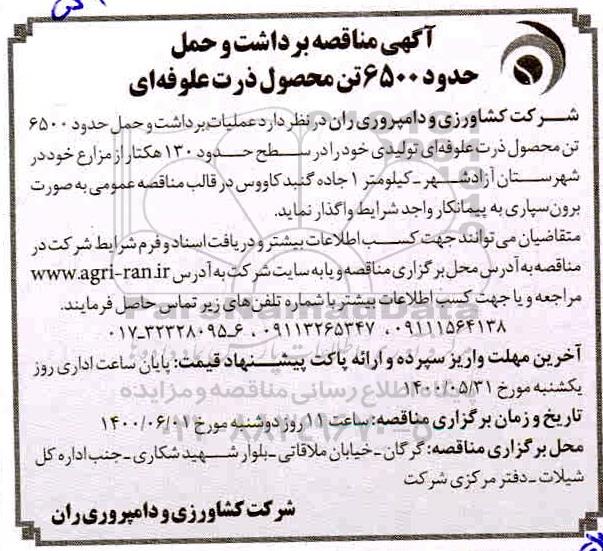 آگهی مناقصه برداشت و حمل
حدود ۶۵۰۰ تن محصول ذرت علوفه‌ای
شرکت کشاورزی و دامپروری ران در نظر دارد عملیات برداشت و حمل حدود ۶۵۰۰
تن محصول ذرت علوفه‌ای تولیدی خود را در سطح حدود ۱۳۰ هکتار از مزارع خود در
شهرستان آزادشهر ـ کیلومتر ۱ جاده گنبدکاووس در قالب مناقصه عمومی به صورت
برون‌سپاری به پیمانکار واجد شرایط واگذار نماید.
متقاضیان می‌توانند جهت کسب اطلاعات بیشتر و دریافت اسناد و فرم شرایط شرکت در
مناقصه به آدرس محل برگزاری مناقصه و یا به سایت شرکت به آدرس www.agri-ran.ir
مراجعه و یا جهت کسب اطلاعات بیشتر با شماره تلفن‌های زیر تماس حاصل فرمایند.
۰۹۱۱۱۵۶۴۱۳۸ ، ۰۹۱۱۳۲۶۵۳۴۷ ، ۶ـ۳۲۳۲۸۰۹۵ـ۰۱۷
آخرین مهلت واریز سپرده و ارائه پاکت پیشنهاد قیمت: پایان ساعت اداری روز
یکشنبه مورخ ۱۴۰۰/۰۵/۳۱
تاریخ و زمان برگزاری مناقصه: ساعت ۱۱ روز دوشنبه مورخ ۱۴۰۰/۰۶/۰۱
محل برگزاری مناقصه: گرگان ـ خیابان ملاقاتی ـ بلوار شهید شکاری ـ جنب اداره کل
شیلات ـ دفتر مرکزی شرکت
شرکت کشاورزی و دامپروری ران
ParsNamadData
پایگاه اطلاع رسانی مناقصه و مزایده